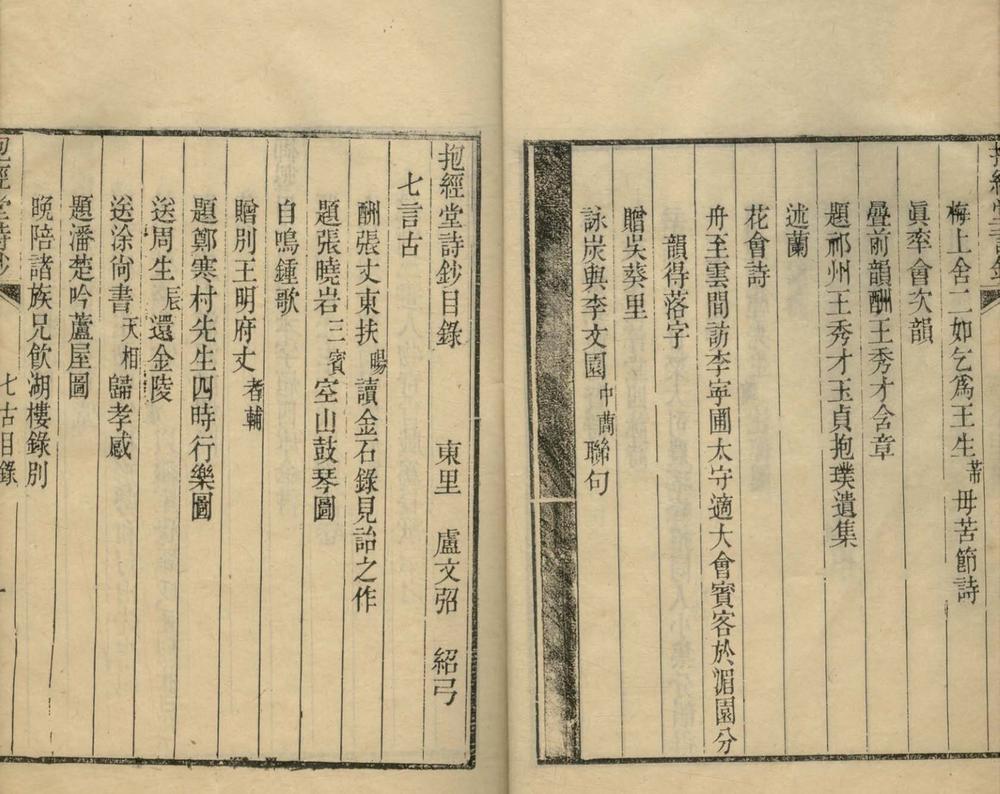 抱經堂詩鈔
梅上舍二如乞爲王生芾母苦節詩
眞率會次韻
疊前韻酬王秀才含章
題祁州王秀才玉貞抱璞遺集
述蘭
花會詩
舟至雲間訪李寧圃太守適大會賓客於湄園分
韻得落字
贈吳葵里
詠炭與李文園中蕳聯句
抱經堂詩鈔目錄
東里 盧文弨 紹弓
七言古
酬張丈東扶暘讀金石錄見詒之作
題張曉岩三賓空山鼓琴圖
自鳴鍾歌
贈別王明府丈者輔
題鄭寒村先生四時行樂圖
送周生辰還金陵
送涂尚書天相歸孝感
題潘楚吟蘆屋圖
晚陪諸族兄飲湖樓錄別
抱經堂詩鈔
七古目錄
一